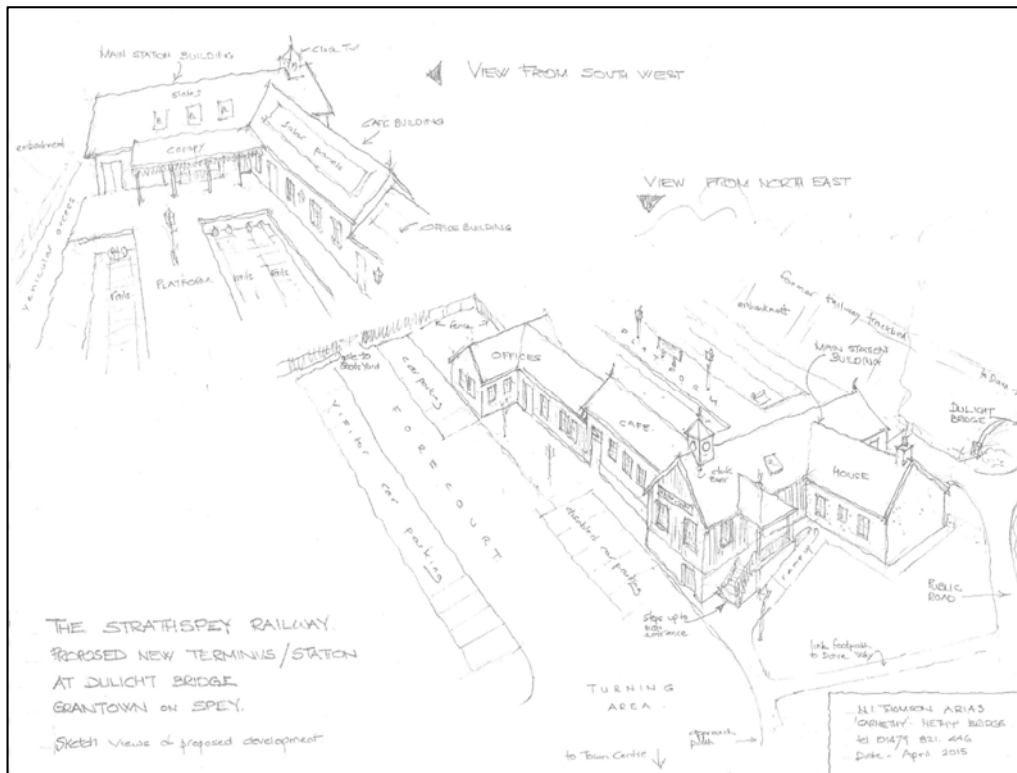 MAIN STATION
BUILDING
clock
slates
VIEW FROM SOUTH WEST
CAFE BUILDING
solar panels
embankment
CANOPY
OFFICE BUILDING
vehicular access
PLATFORM
rails
rails
rails
VIEW FROM NORTH EAST
former railway trackbed
embankment
MAIN STATION
BUILDING
to Dava
DULICHT
BRIDGE
PLATFORM
fence
gate to
Goods Yard
car parking
OFFICES
FORECOURT
visitor car parking
CAFE
clock
tower
HOUSE
disabled car parking
ramp
steps up to
main
entrance
PUBLIC
ROAD
link footpath
to Dava Way
TURNING
AREA
approach
path
to Town Centre
THE STRATHSPEY RAILWAY
PROPOSED NEW TERMINUS/STATION
AT DULICHT BRIDGE
GRANTOWN ON SPEY.
Sketch views of proposed development
N.I. THOMSON ARIAS
'CARNETHY' NETHY BRIDGE
tel 01479 821 446
Date - April 2015